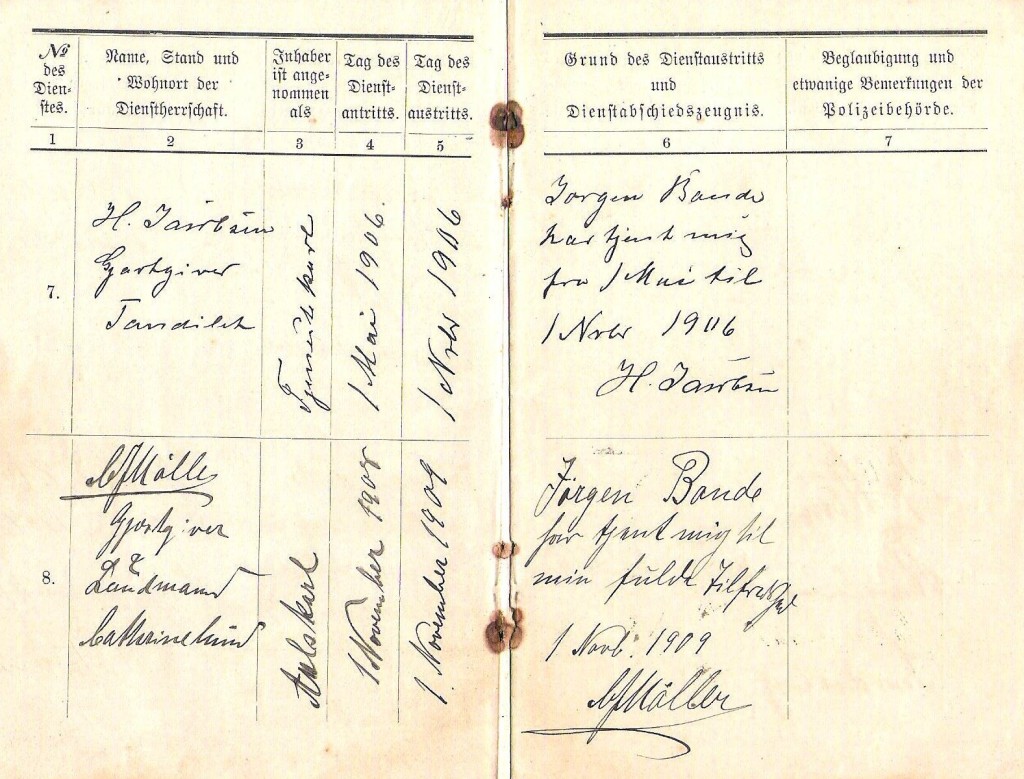 № des Dien- stes.
Name, Stand und Wohnort der Dienstherrschaft.
Inhaber ist ange- nommen als
Tag des Dienst- antritts.
Tag des Dienst- austritts.
Grund des Dienstaustritts und Dienstabschiedszeugnis.
Beglaubigung und etwanige Bemerkungen der Polizeibehörde.
1 2 3 4 5 6 7
7.
H. Jacobsen
Gjæstgiver
Tandslet
Tjenestekarl
1 Mai 1906.
1 Nvbr 1906
Jørgen Bonde
har tjent mig
fra 1 Mai til
1 Nvbr 1906
H. Jacobsen
8.
Möller
Gjæstgiver
&
Landmand
Cathrinelund
Avlskarl
1 November 1908
1. November 1909
Jörgen Bonde
har tjent mig til
min fulde Tilfredshed
1 Novb. 1909
Möller